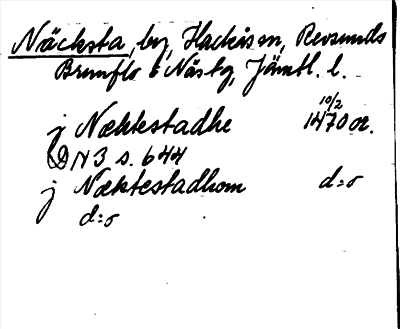 Näcksta, by, Hackås sn, Revsunds
Brunflo o Näs tg, Jämtl. l.
j Næktestadhe 10/2 1470 or.
DN 3 s. 644
j Næktestadhom d:o
d:o